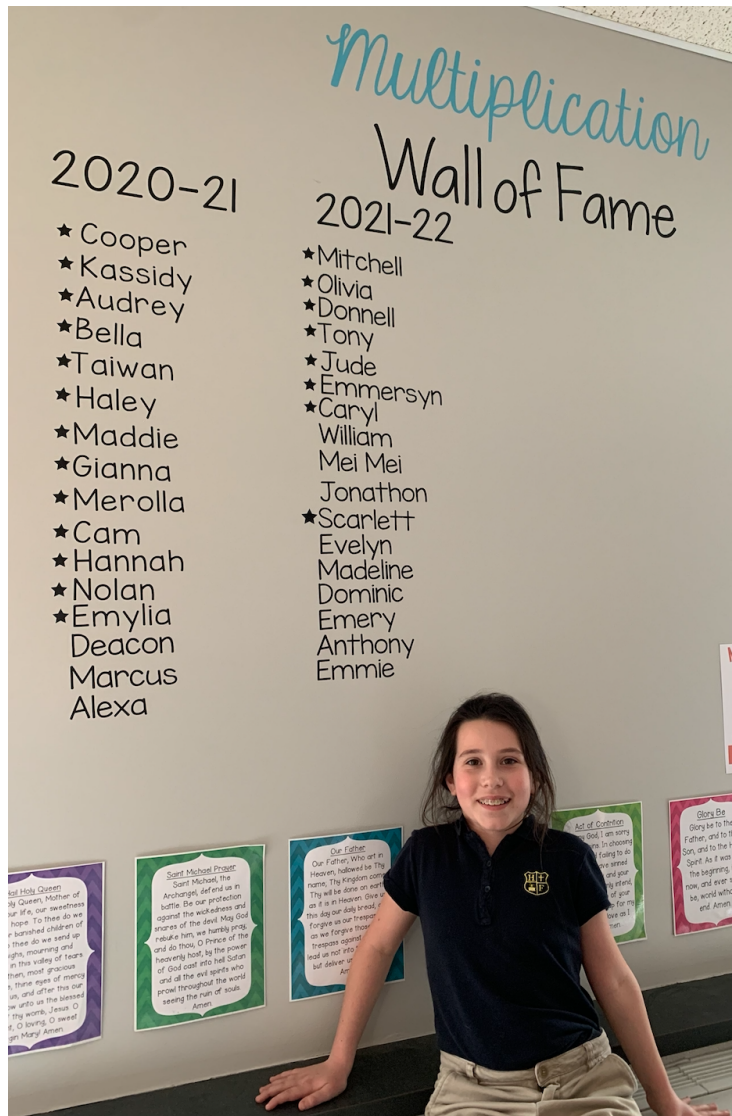 Multiplication
Wall of Fame
2020-21
★ Cooper
★ Kassidy
★ Audrey
★ Bella
★ Taiwan
★ Haley
★ Maddie
★ Gianna
★ Merolla
★ Cam
★ Hannah
★ Nolan
★ Emylia
Deacon
Marcus
Alexa
2021-22
★ Mitchell
★ Olivia
★ Donnell
★ Tony
★ Jude
★ Emmersyn
★ Caryl
William
Mei Mei
Jonathon
★ Scarlett
Evelyn
Madeline
Dominic
Emery
Anthony
Emmie
Holy Queen
Queen, Mother of
life, our sweetness
hope. To thee do we
banished children of
thee do we send up
mourning and
in this valley of tears
then, most gracious
thine eyes of mercy
us, and after this our
unto us the blessed
thy womb, Jesus. O
O loving, O sweet
Mary! Amen.
Saint Michael Prayer
Saint Michael, the
Archangel, defend us in
battle. Be our protection
against the wickedness and
snares of the devil. May God
rebuke him, we humbly pray,
and do thou, O Prince of the
heavenly host, by the power
of God cast into hell Satan
and all the evil spirits who
prowl throughout the world
seeking the ruin of souls.
Amen.
Our Father
Our Father, Who art in
Heaven, hallowed be Thy
name, Thy Kingdom come
Thy will be done on earth
as it is in Heaven. Give
this day our daily bread,
forgive us our trespas
as we forgive those
trespass against
lead us not into
but deliver u
H F
Act of Contrition
God, I am sorry
In choosing
failing to do
sinned
and your
intend,
of your
for my
love as I
Glory Be
Glory be to the
Father, and to th
Son, and to the H
Spirit. As it was
the beginning,
now, and ever s
be, world witho
end. Amen.